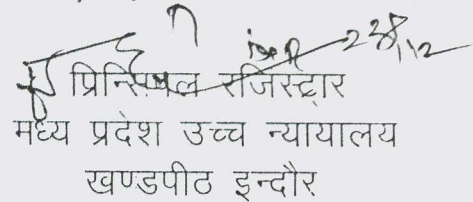 प्रिन्सिपल रजिस्ट्रार
मध्य प्रदेश उच्च न्यायालय
खण्डपीठ इन्दौर